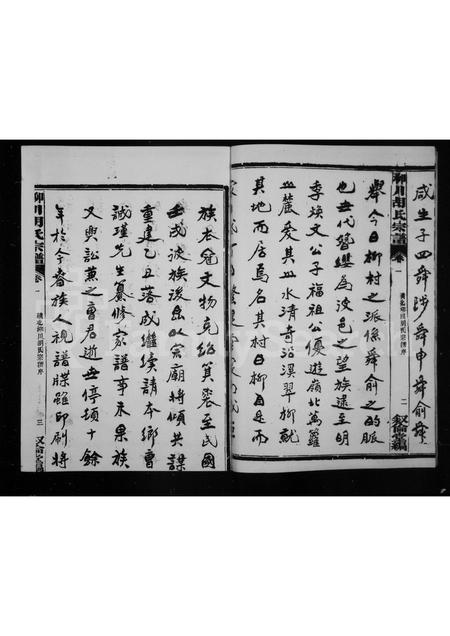 咸生子四舜陟舜申舜俞舜
舉今日柳村之派係舜俞之的脈
也世代簪纓為波邑之望族逮至明
季瑛文公子福祖公優遊嶺北萬蘿
山麓愛其山水清奇沿溪翠柳就
其地而居焉名其村曰柳自是而
柳川胡氏宗譜
卷一
二
敘倫堂編
族衣冠文物克紹箕裘至民國
壬戌波族後岳以宗廟將傾共謀
重建乙丑落成繼續請本鄉曹
誠瑾先生纂修家譜事未果族
又興訟薰之曹君逝世停頓十餘
年於今春族人視譜牒雖印刷將
柳川胡氏宗譜
卷一
三
敘倫堂編